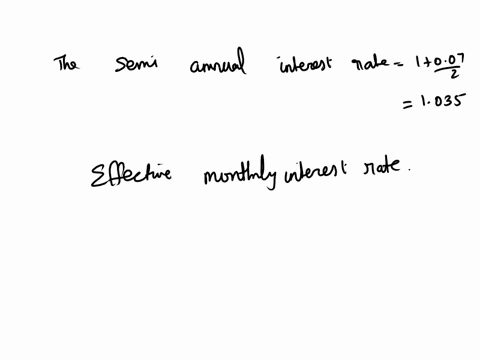 The semi annual interest rate = 1+0.07/2
= 1.035
Effective monthly interest rate.